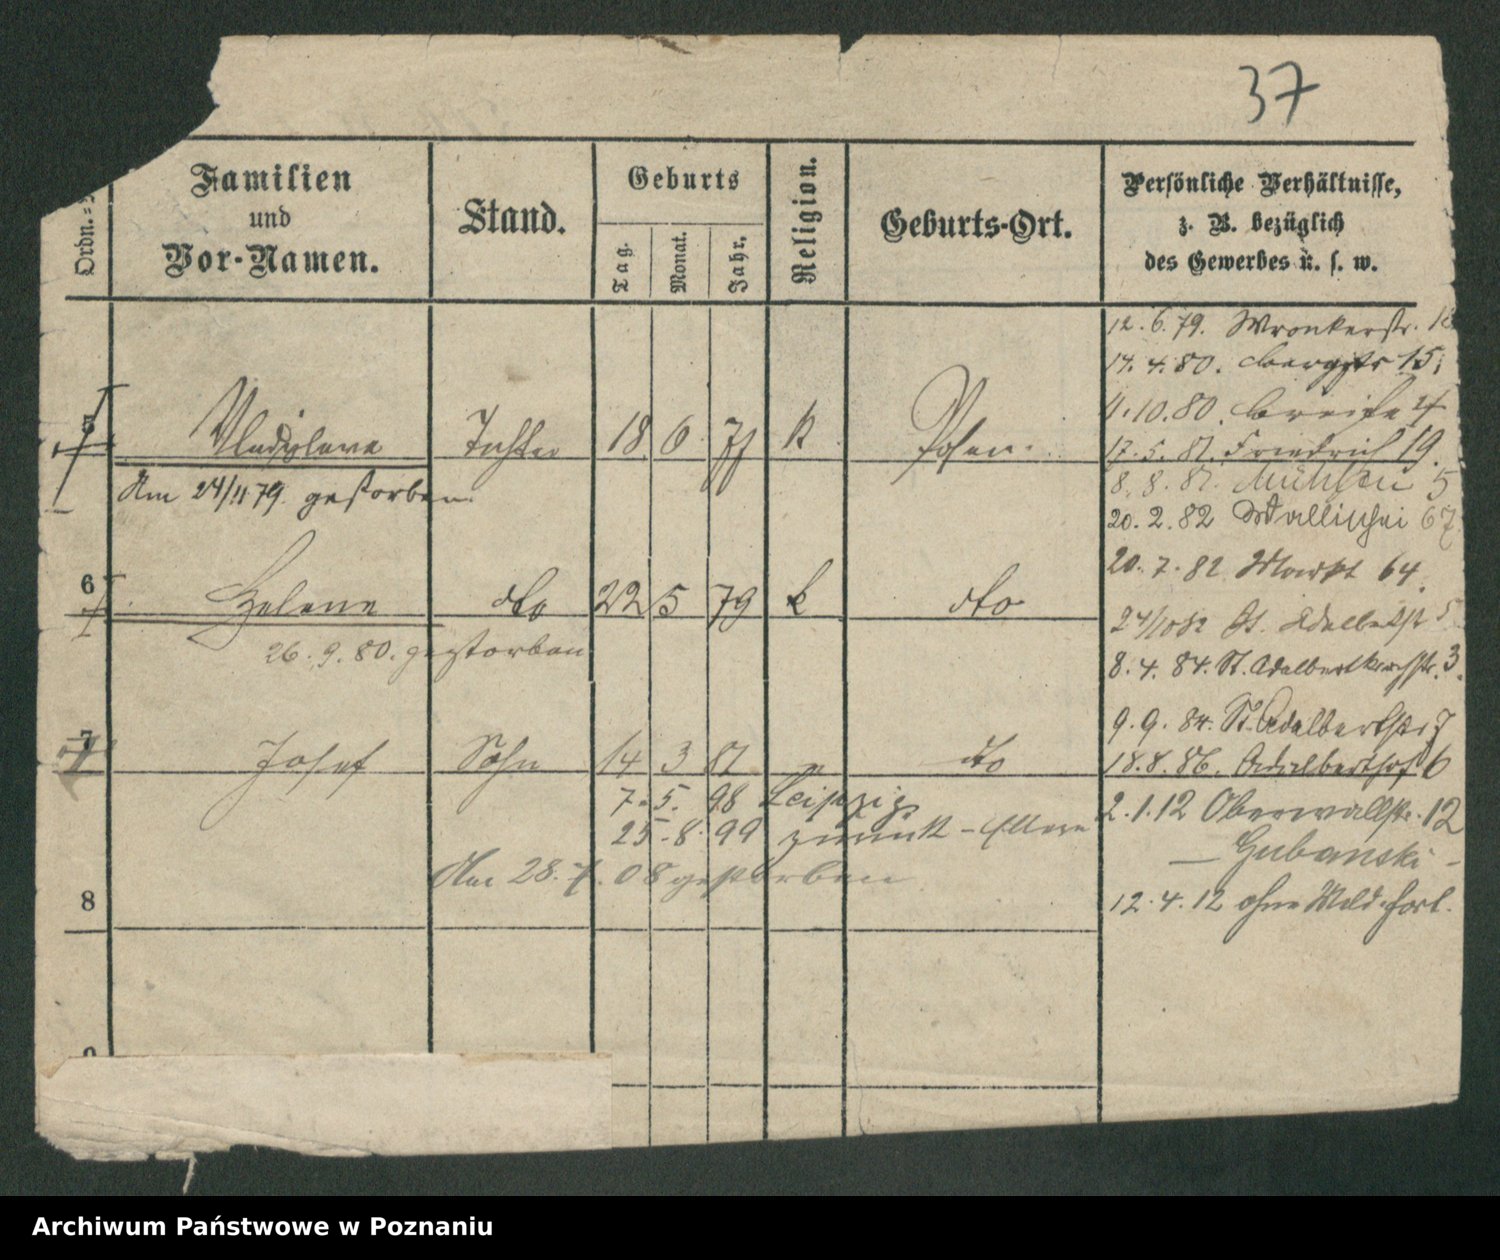 37
Ordn.
Familien
und
Vor-Namen.
Stand.
Geburts
Tag.
Monat.
Jahr.
Religion.
Geburts-Ort.
Persönliche Verhältnisse,
z. B. bezüglich
des Gewerbes u. s. w.
12.6.79. Wronkerstr.
14.4.80. 15
4.10.80. Breite
5 Vladislava Tochter 18 6 k Posen.
17.5.81. Friedrich 19.
Am 24/11 79. gestorben.
8.8.81. Mühlen 5
20.2.82 Wallischei 67
20.7.82 Markt 64.
6 Helene dto 22 5 79 k dto
24/10 82 St. Adalbertst 5
26.9.80. gestorben
8.4.84. St. Adalbertkirchstr. 3.
9.9.84. St. Adalbertstr 7
7 Josef Sohn 14 3 81 " dto
18.8.86. Adalberthof 6
7.5.98 Leipzig
2.1.12 Oberwallstr. 12
25.8.99 zurück - Eltern
— Gubanski -
Am 28.7.08 gestorben
8
12.4.12 ohne Meld. fort.
9
Archiwum Państwowe w Poznaniu